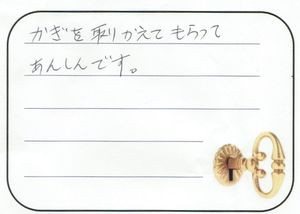 かぎを取りかえてもらって
あんしんです。